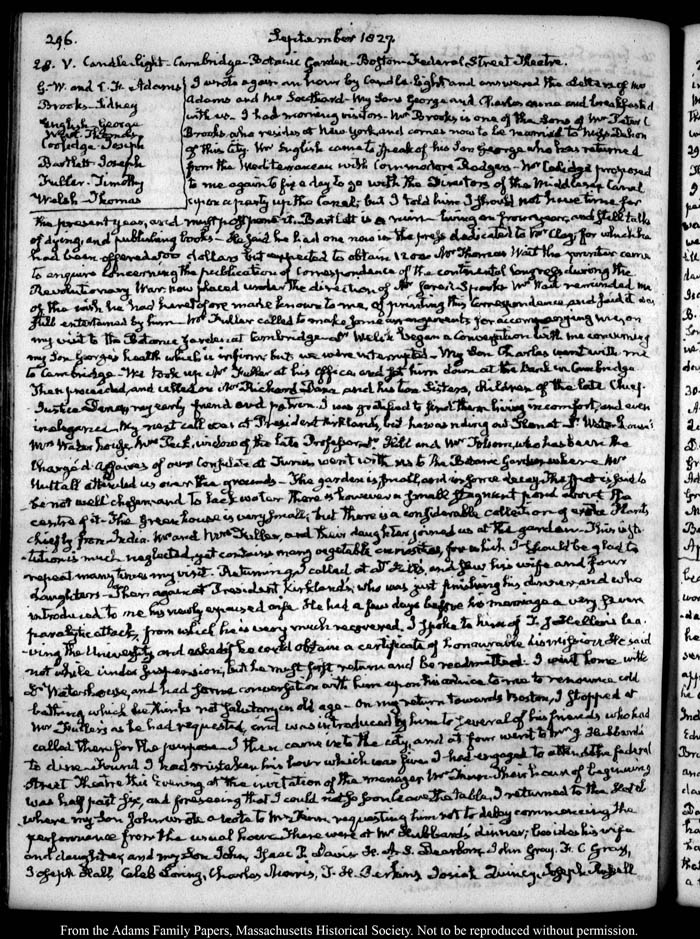 296.
September 1827.
28. V. Candle-light. Cambridge-Botanic Garden-Boston-Federal Street Theatre.
G. W. and C. F. Adams
Brooks-Sidney
English-George
Wait-Thomas
Coolidge-Joseph
Bartlett-Joseph
Fuller-Timothy
Welsh-Thomas
I wrote again an hour by Candle-light and answered the Letters of Mrs
Adams and Mr Southard. My Sons George and Charles came and breakfasted
with us. I had morning visitors. Mr Brooks is one of the Sons of Mr Peter C
Brooks, who resides at New York and comes now to be married to Miss Dehon
of this City. Mr English came to speak of his Son George who has returned
from the Mediterranean with Commodore Rodgers. Mr Coolidge proposed
to me again to fix a day to go with the Directors of the Middlesex Canal
upon a party up the Canal; but I told him I should not have time for
the present year, and must postpone it. Bartlett is a ruin living on from year, and still talks
of dying, and publishing books. He said he had one now in the press dedicated to Mr Clay, for which he
had been offered 500 dollars but expected to obtain 1200. Mr Thomas Wait the printer came
to enquire concerning the publication of Correspondence of the continental Congress during the
Revolutionary War, now placed under the direction of Mr Jared Sparks. Mr Wait reminded me
of the wish he had heretofore made known to me, of printing this Correspondence, and said it was
still entertained by him. Mr Fuller called to make some arrangements for accompanying me, on
my visit to the Botanic Garden at Cambridge. Dr Welsh began a Conversation with me concerning
my Son George's health which is infirm but we were interrupted. My Son Charles went with me
to Cambridge. We took up Mr Fuller at his office and set him down at the Bank in Cambridge.
Then proceeded, and called on Mr Richard Dana and his two Sisters, children of the late Chief-
Justice Dana, my early friend and patron. I was gratified to find them living in comfort, and even
in elegance. My next call was at President Kirkland's, but he was riding out. Then at Dr Waterhouse's
Mrs Waterhouse, Mrs Peck, widow of the late Professor, Dr Hill and Mr Folsom, who has been the
Chargé d'Affaires of our Consulate at Tunis went with us to the Botanic Garden where Mr
Nuttall attended us over the grounds. The garden is small, and in some decay. The spot is said to
be not well chosen, and to lack water. There is however a small stagnant pond about the
centre of it. The Green house is very small; but there is a considerable collection of exotic Plants
chiefly from India. Mr and Mrs Fuller, and their daughter joined us at the garden. This insti-
tution is much neglected, yet contains many vegetable curiosities, for which I should be glad to
repeat many times my visit. Returning I called at Dr Hill's, and saw his wife and four
daughters. Then again at President Kirkland's, who was just finishing his dinner, and who
introduced to me his newly espoused wife. He had a few days before his marriage a very severe
paralytic attack, from which he is very much recovered. I spoke to him of T. J. Hellen's lea-
ving the University and asked if he could obtain a certificate of honourable dismission. He said
not while under suspension, but he must first return and be readmitted. I went home with
Dr Waterhouse, and had some conversation with him upon his advice to me to renounce cold
bathing which he thinks not salutary in old age. On my return towards Boston, I stopped at
Mr Fuller's as he had requested, and was introduced by him to several of his friends who had
called there for the purpose. I then came into the city, and at four went to Mr J. Hubbard's
to dine. Found I had mistaken his hour which was five. I had engaged to attend the federal
Street Theatre this Evening at the invitation of the manager Mr Finn. Their hour of beginning
was half past six, and foreseeing that I could not so soon leave the table, I returned to the Hotel
where my Son John wrote a note to Mr Finn, requesting him not to delay commencing the
performance from the usual hour. There were at Mr Hubbard's dinner; besides his wife
and daughter, and my Son John, Isaac P. Davis, H. A. S. Dearborn, John Gray, F. C Gray,
Joseph Hall, Caleb Loring, Charles Morris, T. H. Perkins, Josiah Quincy, Joseph Russell
From the Adams Family Papers, Massachusetts Historical Society. Not to be reproduced without permission.